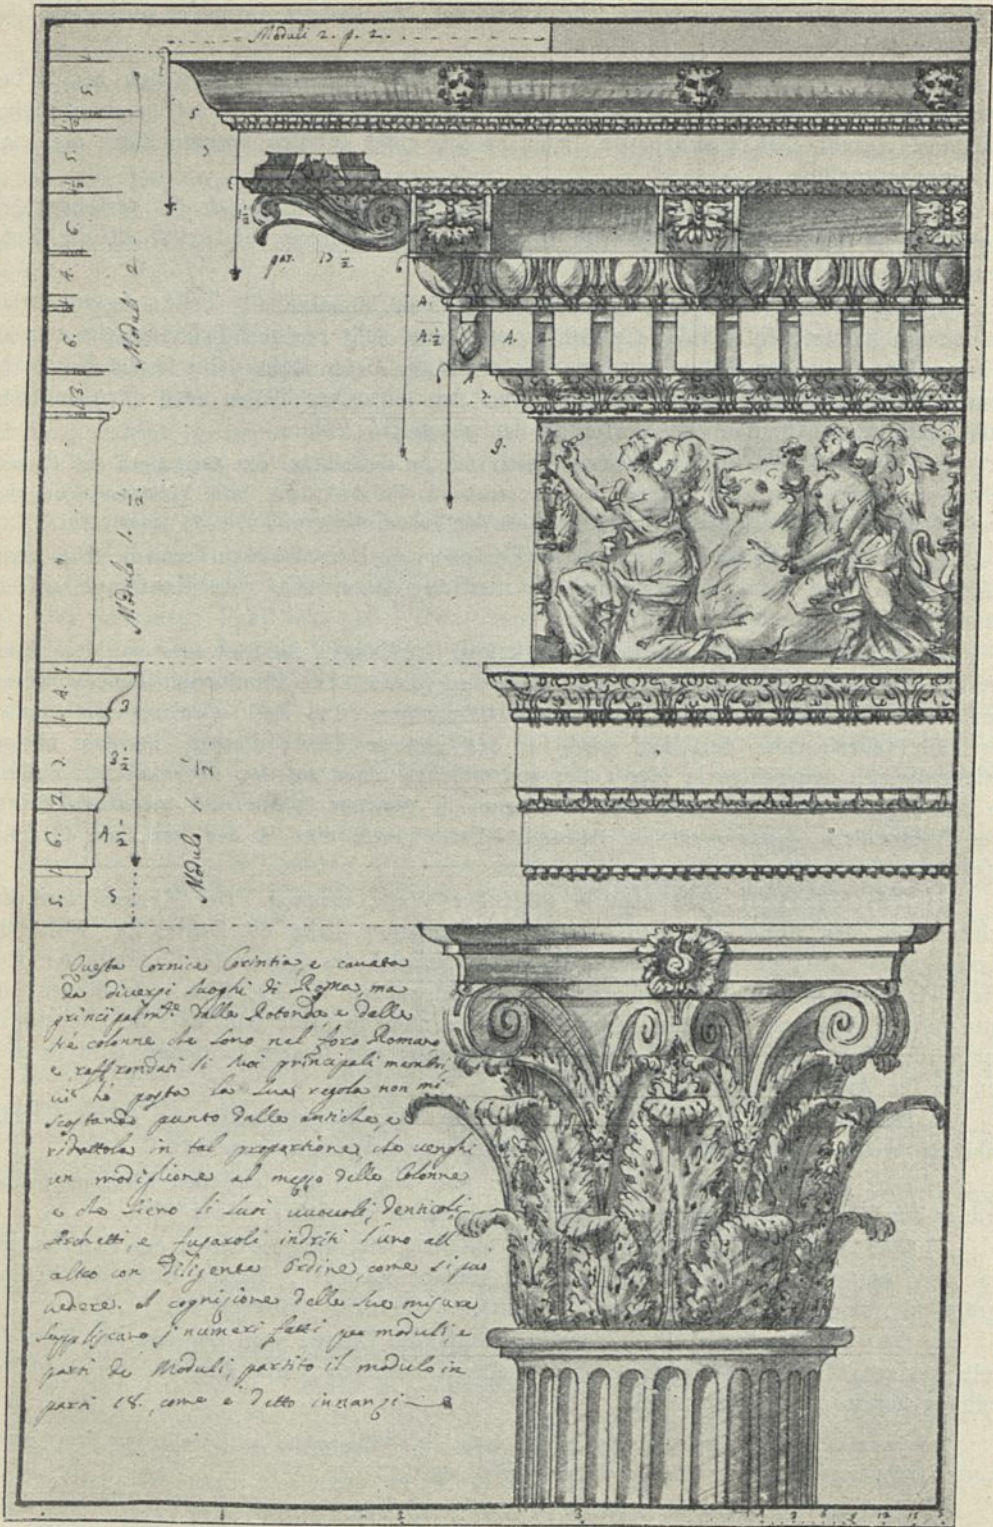 Moduli 2. p. 2.
5.
5.
6
4.
6.
3
5
par. 13 1/2
4.
4 1/2
4.
9.
Moduli 2
Modulo 1. 1/2
4.
3
7.
3 1/2
2.
6.
4 1/2
5.
5
Modulo 1 1/2
Questa Cornice Corintia, e cavata
da diversi luoghi di Roma, ma
principalm.te dalla Rotonda e dalle
trè colonne che sono nel foro Romano
e raffrondati li suoi principali membri,
vi hò posta la sua regola non mi
scostando punto dalle antiche, e
ridottola in tal proportione, che venghi
un modiglione al mezzo delle Colonne
e che sieno li suoi uuovoli, denticoli,
Archetti, e fusaroli indriti l'uno all
altro con diligente Ordine, come si può
vedere. A cognizione delle sue misure
suppliscano j numeri fatti per moduli, e
parti de Moduli, partito il modulo in
parti 18. come è detto innanzi
1 2 3 3 6 9 12 15